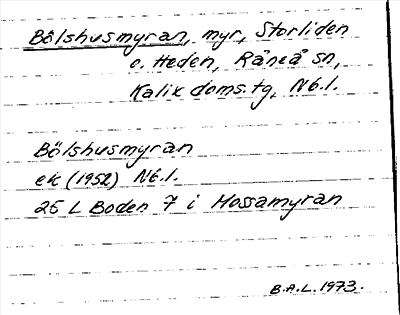 Bölshusmyran, myr, Storliden
o. Heden, Råneå sn,
Kalix doms.tg, Nb.l.
Bölshusmyran
ek (1952) Nb.l.
25 L Boden 7 i Hossamyran
B.A.L. 1973.